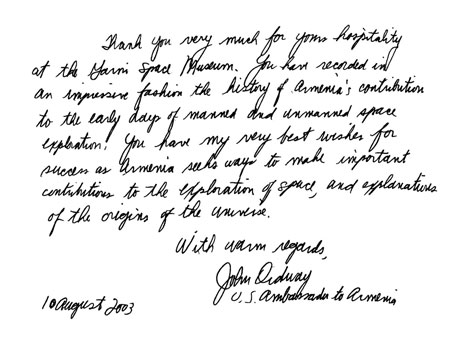 Thank you very much for your hospitality
at the Garni Space Museum. You have recorded in
an impressive fashion the history of Armenia's contribution
to the early days of manned and unmanned space
exploration. You have my very best wishes for
success as Armenia seeks ways to make important
contributions to the exploration of space, and explanations
of the origins of the universe.
With warm regards,
John Ordway
U.S. Ambassador to Armenia
10 August 2003